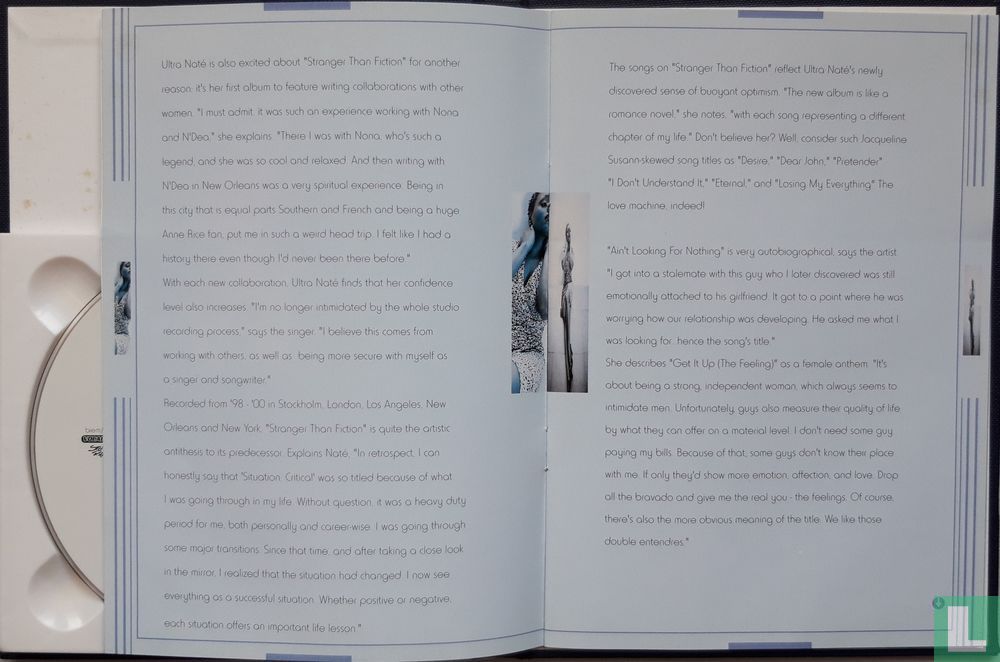 Ultra Naté is also excited about "Stranger Than Fiction" for another
reason: it's her first album to feature writing collaborations with other
women. "I must admit, it was such an experience working with Nona
and N'Dea," she explains. "There I was with Nona, who's such a
legend, and she was so cool and relaxed. And then writing with
N'Dea in New Orleans was a very spiritual experience. Being in
this city that is equal parts Southern and French and being a huge
Anne Rice fan, put me in such a weird head trip. I felt like I had a
history there even though I'd never been there before."
With each new collaboration, Ultra Naté finds that her confidence
level also increases. "I'm no longer intimidated by the whole studio
recording process," says the singer. "I believe this comes from
working with others, as well as being more secure with myself as
a singer and songwriter."
Recorded from '98 - '00 in Stockholm, London, Los Angeles, New
Orleans and New York, "Stranger Than Fiction" is quite the artistic
antithesis to its predecessor. Explains Naté, "In retrospect, I can
honestly say that 'Situation: Critical' was so titled because of what
I was going through in my life. Without question, it was a heavy duty
period for me, both personally and career-wise. I was going through
some major transitions. Since that time, and after taking a close look
in the mirror, I realized that the situation had changed. I now see
everything as a successful situation. Whether positive or negative,
each situation offers an important life lesson."
The songs on "Stranger Than Fiction" reflect Ultra Naté's newly
discovered sense of buoyant optimism. "The new album is like a
romance novel," she notes, "with each song representing a different
chapter of my life." Don't believe her? Well, consider such Jacqueline
Susann-skewed song titles as "Desire," "Dear John," "Pretender"
"I Don't Understand It," "Eternal," and "Losing My Everything" The
love machine, indeed!
"Ain't Looking For Nothing" is very autobiographical, says the artist.
"I got into a stalemate with this guy who I later discovered was still
emotionally attached to his girlfriend. It got to a point where he was
worrying how our relationship was developing. He asked me what I
was looking for, hence the song's title."
She describes "Get It Up (The Feeling)" as a female anthem. "It's
about being a strong, independent woman, which always seems to
intimidate men. Unfortunately, guys also measure their quality of life
by what they can offer on a material level. I don't need some guy
paying my bills. Because of that, some guys don't know their place
with me. If only they'd show more emotion, affection, and love. Drop
all the bravado and give me the real you - the feelings. Of course,
there's also the more obvious meaning of the title. We like those
double entendres."
biem/